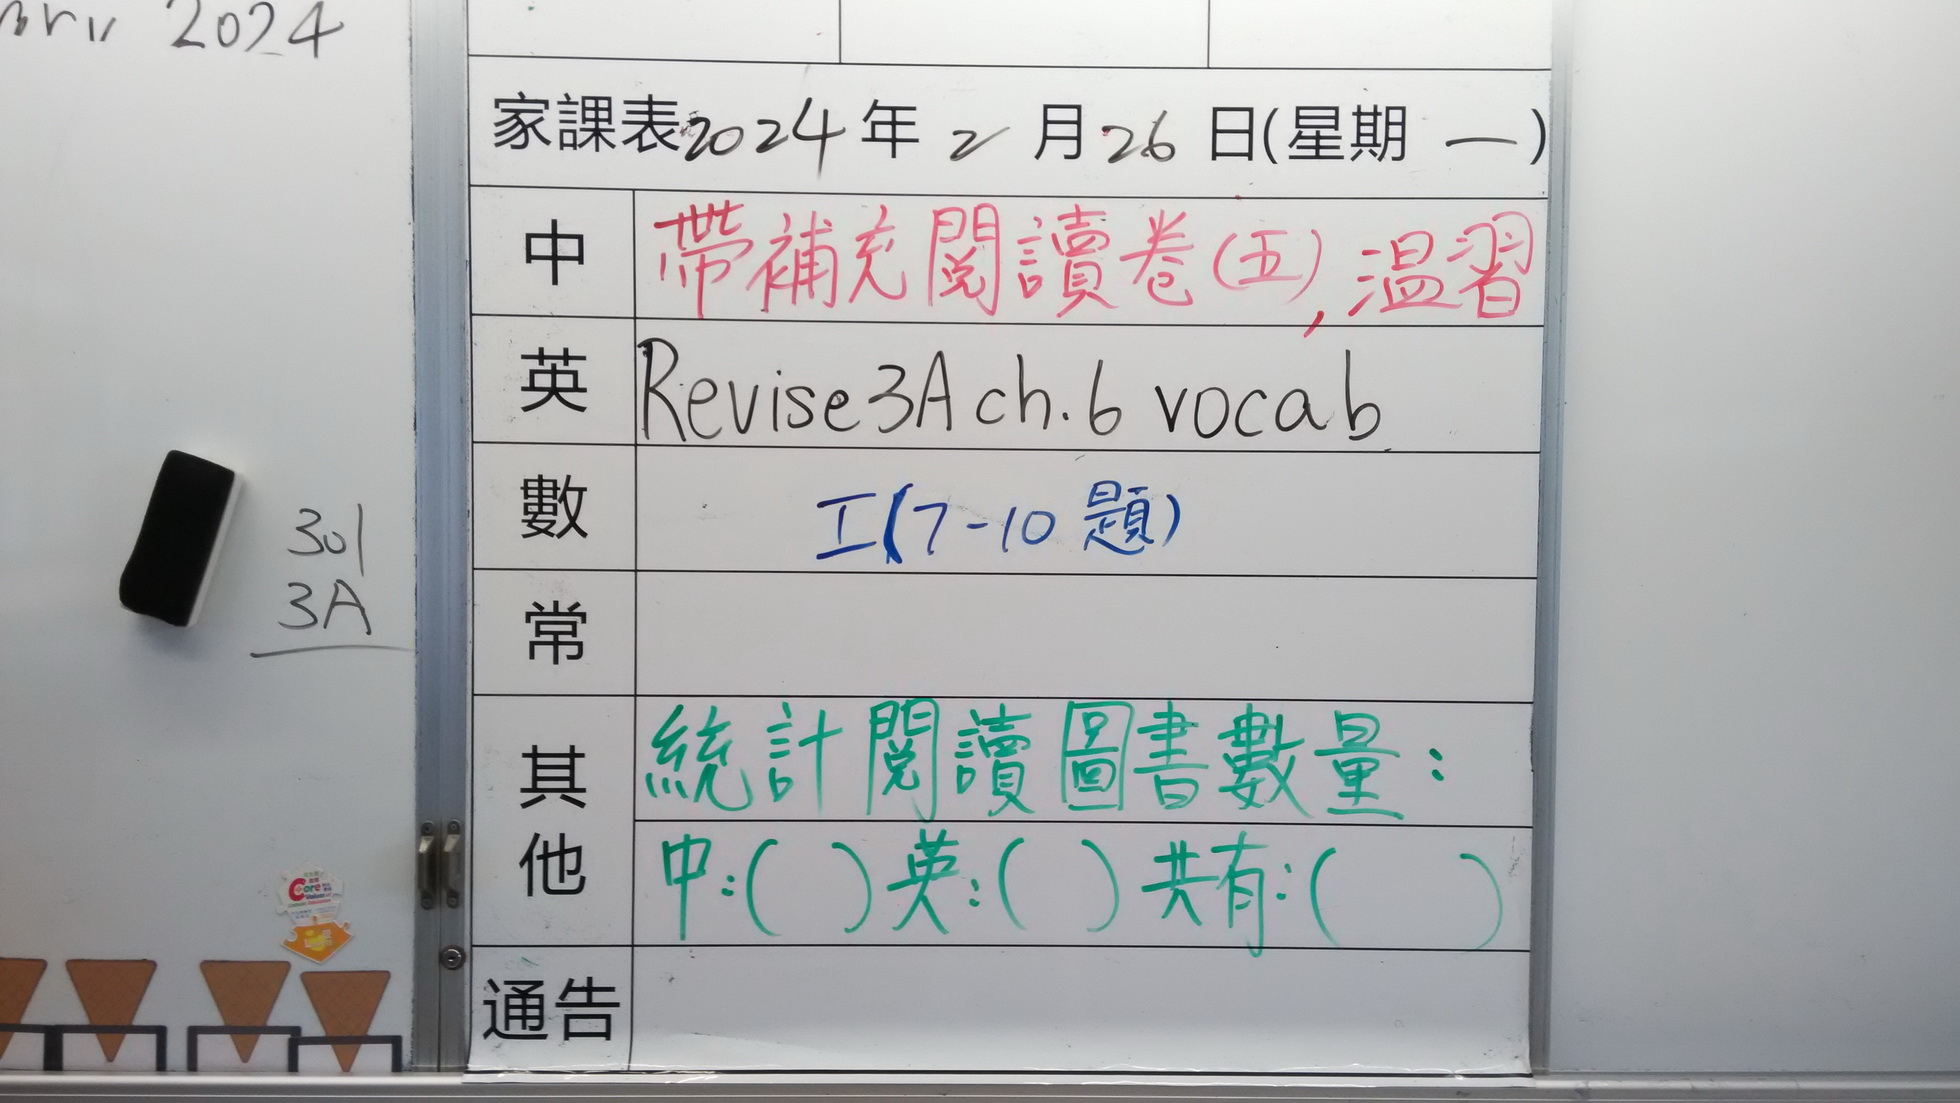 2024
家課表2024年2月26日(星期一)
中 帶補充閱讀卷(五),温習
英 Revise 3A ch.6 vocab
數 I(7-10題)
301
3A
常
其他 統計閱讀圖書數量:
中:( )英:( )共有:( )
Core
通告